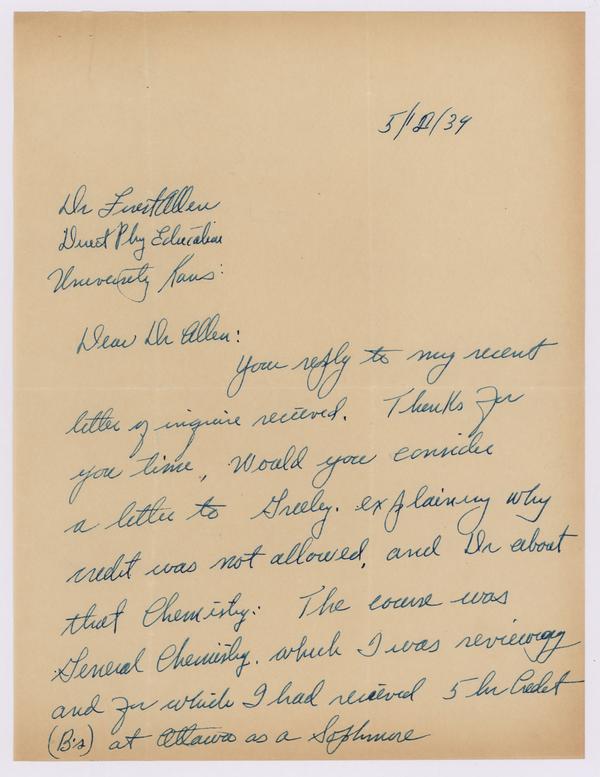 5/12/39
Dr Forest Allen
Direct Phy Education
University Kans:
Dear Dr Allen:
Your reply to my recent
letter of inquire recieved. Thanks for
you time, Would you consider
a letter to Greeley. explaining why
credit was not allowed, and Dr about
that Chemistry: The course was
General Chemistry. which I was reviewing
and for which I had recieved 5 hr Credet
(B's) at Ottawa as a Sophmore